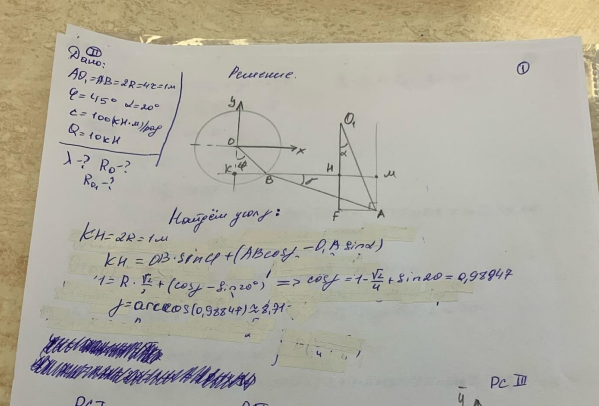 II
Дано:
AO₁=AB=2R=4r=1м
φ=45° α=20°
c=100(кН·м)/рад
Q=10кН
λ-? R₀-?
R₀₁-?
Решение.
1
y
O
x
φ
K
B
γ
O₁
α
H
M
F
A
Найдём угол γ:
KH=2R=1м
KH=OB·sinφ+(ABcosγ-O₁A sinα)
1=R·√2/2+(cosγ-sin20°) => cosγ=1-√2/4+sin20=0,98847
γ=arccos(0,98847)≈8,71
PC III